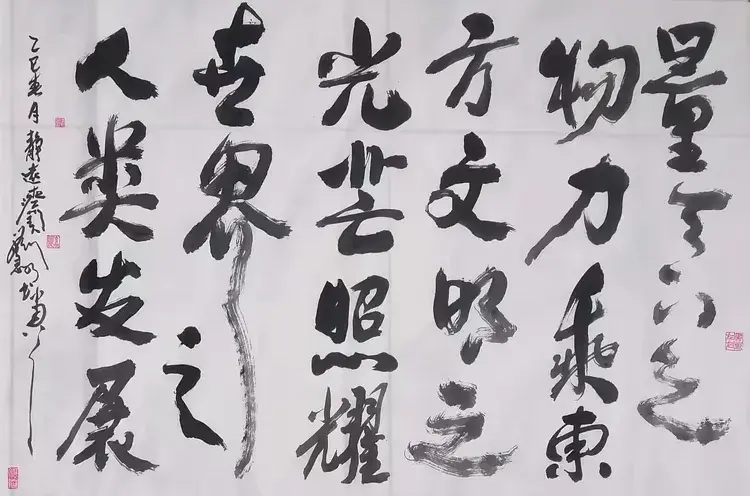 量天下之
物力乘東
方文明之
光芒照耀
世界之
人类发展
乙巳春月静远